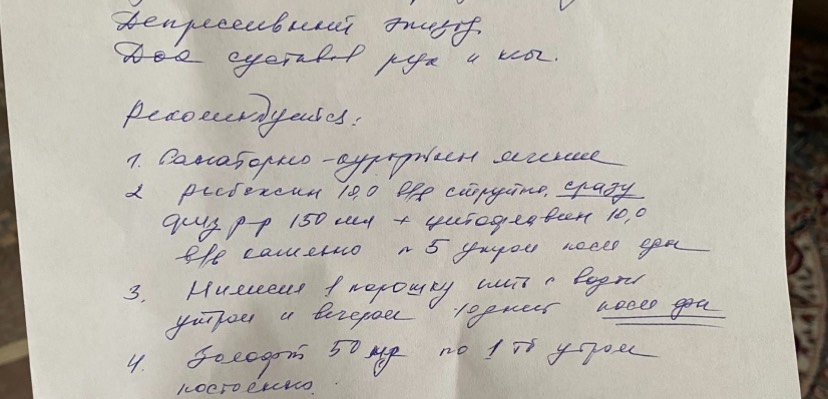 Депрессивный эпизод
Доа суставов рук и
Рекомендуется:
1. Санаторно-курортн лечение
2 10,0 в/в струйно, сразу
физ р-р 150 мл + цитофлавин 10,0
в/в капельно n 5 утром после еды
3. Нимесил 1 порошку пить с водой
утром и вечером 10дней после еды
4. Золофт 50 мг по 1 тб утром
постоянно.